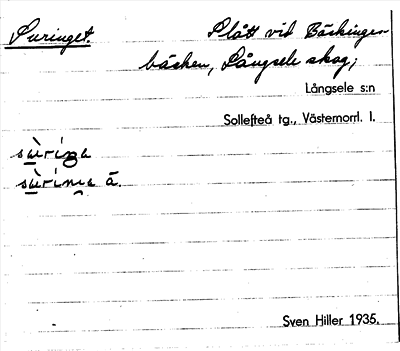 Suringet. Slått vid Böskingen
bäcken, Långsele skog;
Långsele s:n
Sollefteå tg., Västernorrl. l.
sùriŋa
sùrinıa ā.
Sven Hiller 1935.